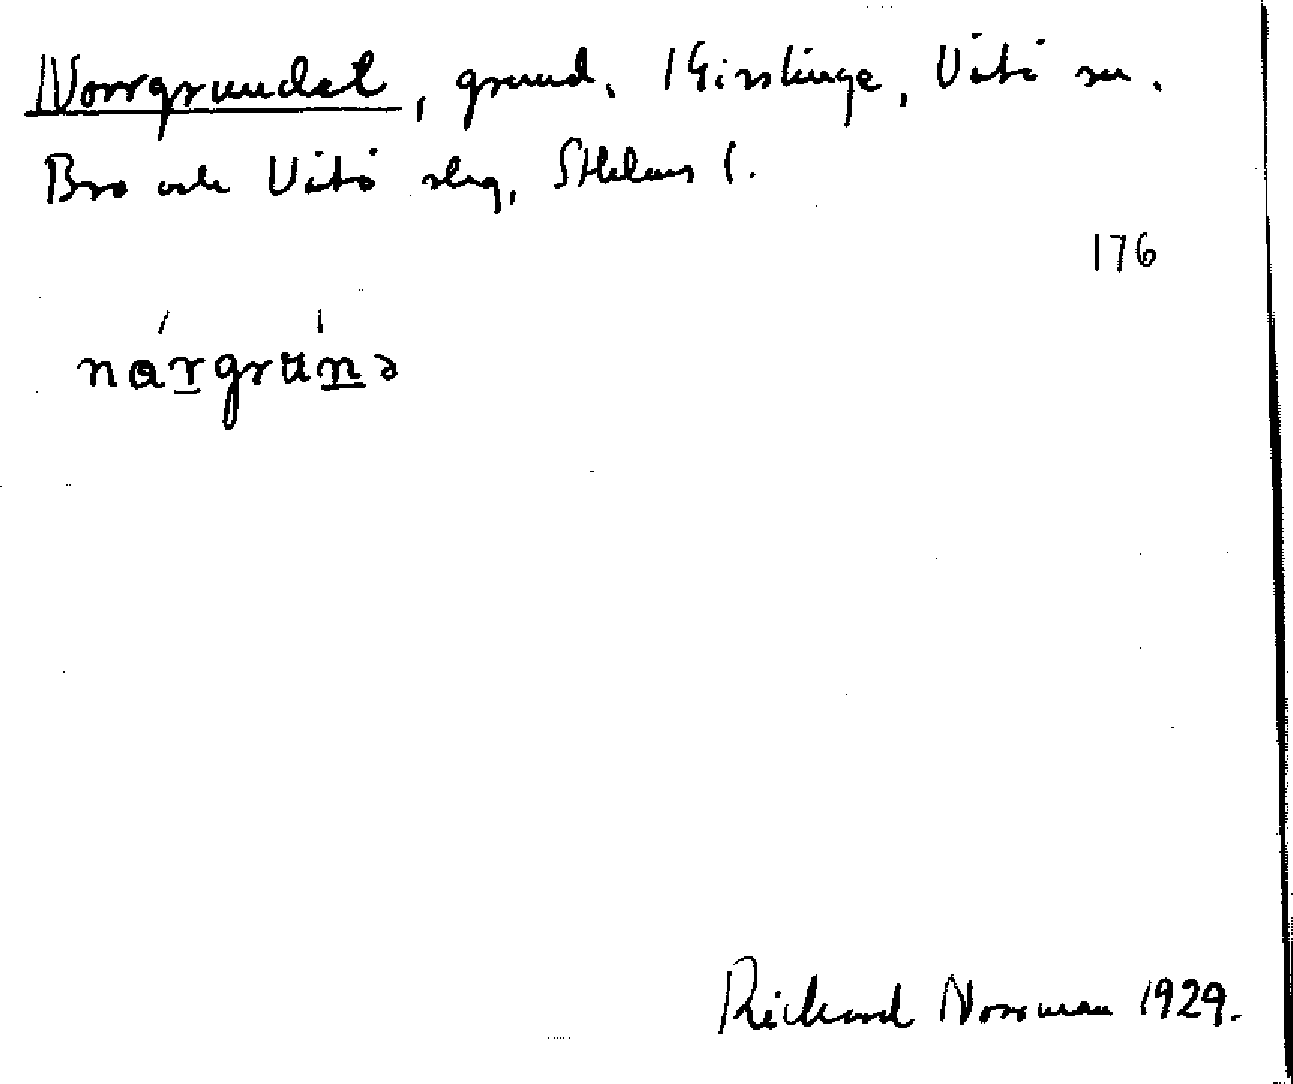 Norrgrundet, grund, Hirslinge, Vätö sn.
Bro och Vätö skg, Sthlms l.
176
nårgrunə
Rickard Norrman 1929.